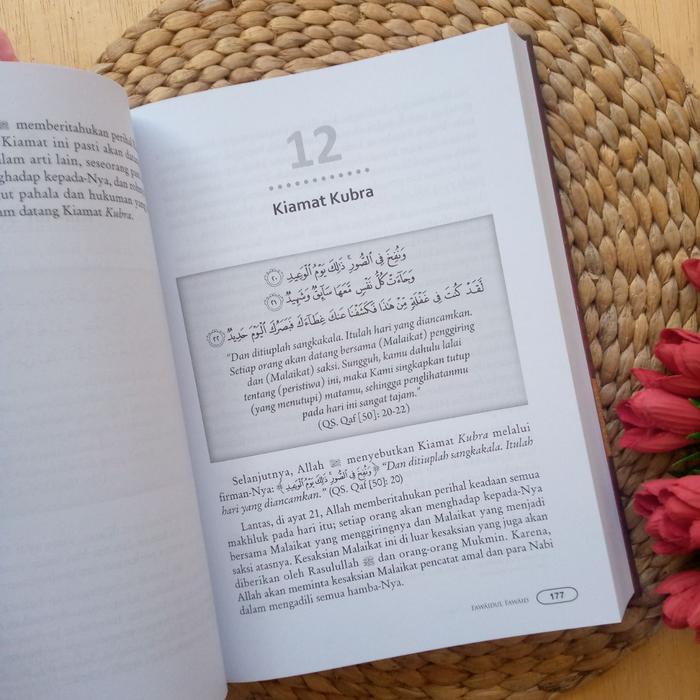 ﷺ memberitahukan perihal
Kiamat ini pasti akan
dalam arti lain, seseorang
kepada-Nya, dan
pahala dan hukuman yang
datang Kiamat Kubra.
12
Kiamat Kubra
وَنُفِخَ فِي الصُّورِ ۚ ذَٰلِكَ يَوْمُ الْوَعِيدِ ٢٠
وَجَاءَتْ كُلُّ نَفْسٍ مَّعَهَا سَائِقٌ وَشَهِيدٌ ٢١
لَّقَدْ كُنتَ فِي غَفْلَةٍ مِّنْ هَٰذَا فَكَشَفْنَا عَنكَ غِطَاءَكَ فَبَصَرُكَ الْيَوْمَ حَدِيدٌ ٢٢
"Dan ditiuplah sangkakala. Itulah hari yang diancamkan.
Setiap orang akan datang bersama (Malaikat) penggiring
dan (Malaikat) saksi. Sungguh, kamu dahulu lalai
tentang (peristiwa) ini, maka Kami singkapkan tutup
(yang menutupi) matamu, sehingga penglihatanmu
pada hari ini sangat tajam."
(QS. Qaf [50]: 20-22)
Selanjutnya, Allah menyebutkan Kiamat Kubra melalui
firman-Nya: ﴿وَنُفِخَ فِي الصُّورِ ۚ ذَٰلِكَ يَوْمُ الْوَعِيدِ﴾ "Dan ditiuplah sangkakala. Itulah
hari yang diancamkan." (QS. Qaf [50]: 20)
Lantas, di ayat 21, Allah memberitahukan perihal keadaan semua
makhluk pada hari itu; setiap orang akan menghadap kepada-Nya
bersama Malaikat yang menggiringnya dan Malaikat yang menjadi
saksi atasnya. Kesaksian Malaikat ini di luar kesaksian yang juga akan
diberikan oleh Rasulullah ﷺ dan orang-orang Mukmin. Karena,
Allah akan meminta kesaksian Malaikat pencatat amal dan para Nabi
dalam mengadili semua hamba-Nya.
FAWĀIDUL FAWĀID 177